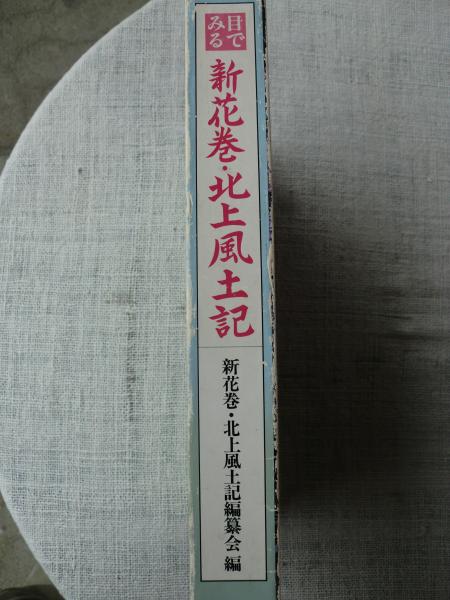 目で
みる
新花巻・北上風土記
新花巻・北上風土記編纂会 編